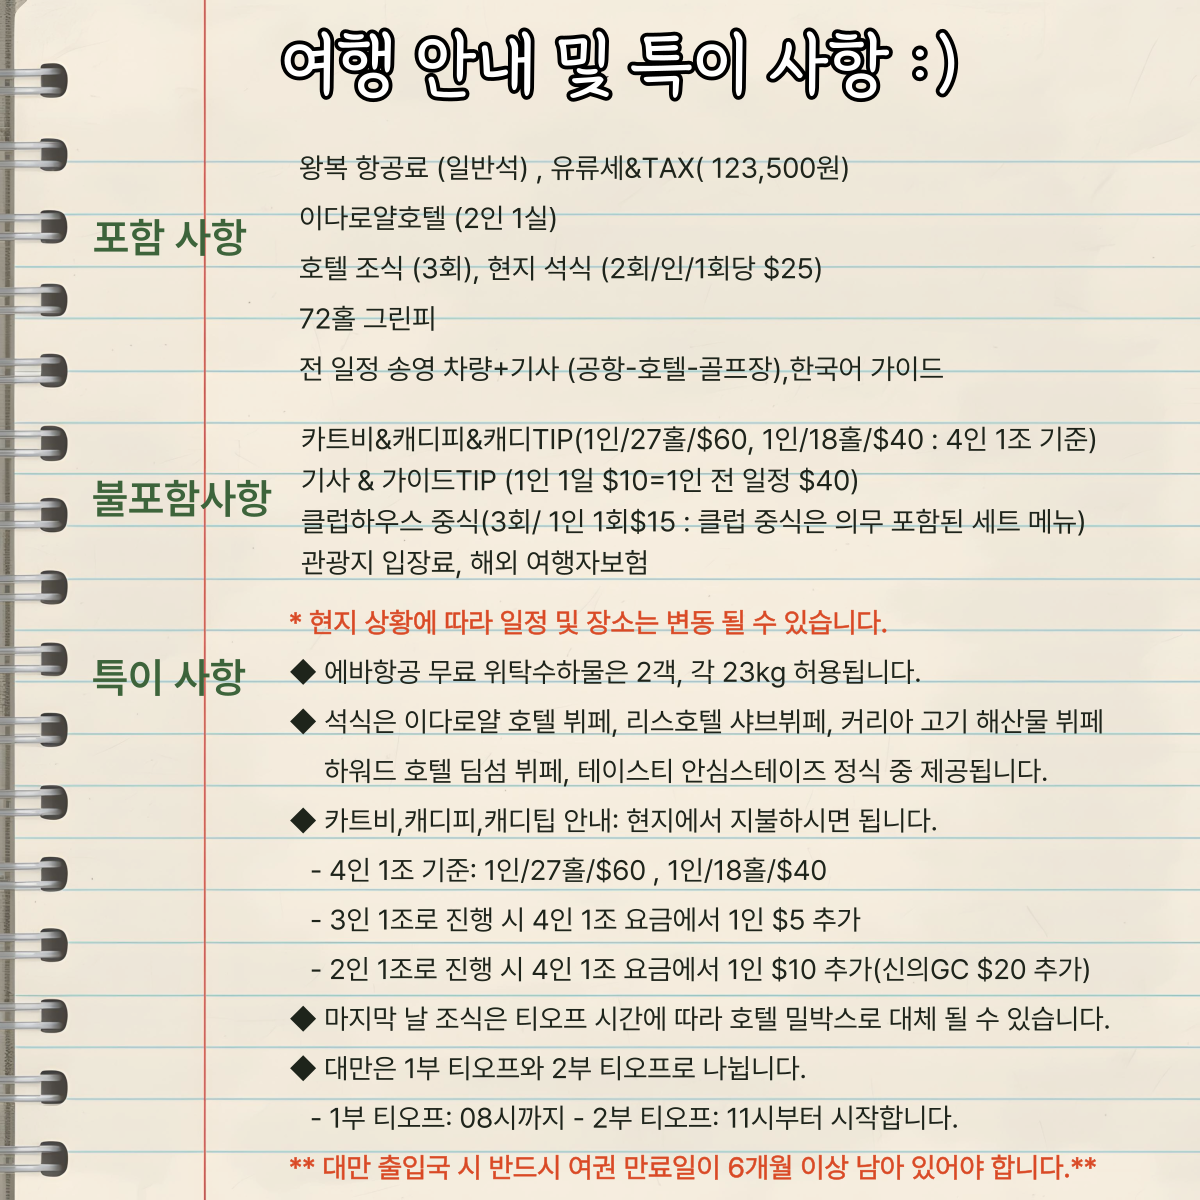 여행 안내 및 특이 사항 :)
포함 사항
왕복 항공료 (일반석) , 유류세&TAX( 123,500원)
이다로얄호텔 (2인 1실)
호텔 조식 (3회), 현지 석식 (2회/인/1회당 $25)
72홀 그린피
전 일정 송영 차량+기사 (공항-호텔-골프장),한국어 가이드
불포함사항
카트비&캐디피&캐디TIP(1인/27홀/$60, 1인/18홀/$40 : 4인 1조 기준)
기사 & 가이드TIP (1인 1일 $10=1인 전 일정 $40)
클럽하우스 중식(3회/ 1인 1회$15 : 클럽 중식은 의무 포함된 세트 메뉴)
관광지 입장료, 해외 여행자보험
특이 사항
* 현지 상황에 따라 일정 및 장소는 변동 될 수 있습니다.
◆ 에바항공 무료 위탁수하물은 2객, 각 23kg 허용됩니다.
◆ 석식은 이다로얄 호텔 뷔페, 리스호텔 샤브뷔페, 커리아 고기 해산물 뷔페
하워드 호텔 딤섬 뷔페, 테이스티 안심스테이즈 정식 중 제공됩니다.
◆ 카트비,캐디피,캐디팁 안내: 현지에서 지불하시면 됩니다.
- 4인 1조 기준: 1인/27홀/$60 , 1인/18홀/$40
- 3인 1조로 진행 시 4인 1조 요금에서 1인 $5 추가
- 2인 1조로 진행 시 4인 1조 요금에서 1인 $10 추가(신의GC $20 추가)
◆ 마지막 날 조식은 티오프 시간에 따라 호텔 밀박스로 대체 될 수 있습니다.
◆ 대만은 1부 티오프와 2부 티오프로 나뉩니다.
- 1부 티오프: 08시까지 - 2부 티오프: 11시부터 시작합니다.
** 대만 출입국 시 반드시 여권 만료일이 6개월 이상 남아 있어야 합니다.**